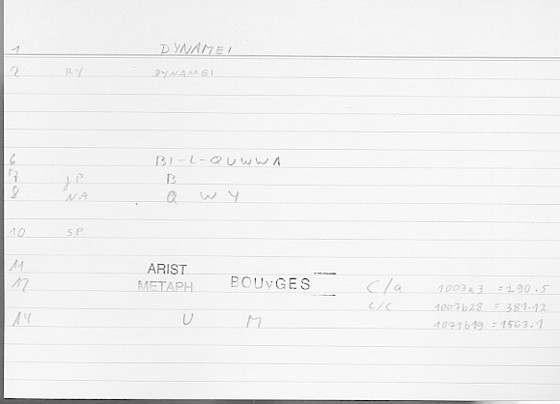 1 DYNAMEI
2 RY DYNAMEI
6 BI-L-QUWWA
7 JP B
8 NA Q W Y
10 SP
11 ARIST
12 METAPH BOUYGES C/a 1007a3 = 290.5
c/c 1007b28 = 381.12
14 U M 1071b19 = 1563.1